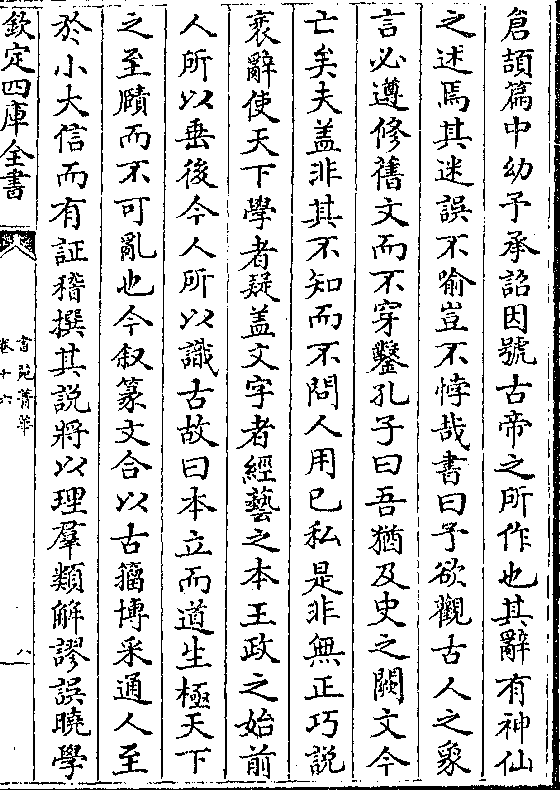 倉頡篇中幼子承詔因號古帝之所作也其辭有神仙
之述焉其迷誤不喻豈不悖哉書曰予欲觀古人之象
言必遵修舊文而不穿鑿孔子曰吾猶及史之闕文今
亡矣夫盖非其不知而不問人用已私是非無正巧說
衺辭使天下學者疑盖文字者經藝之本王政之始前
人所以垂後今人所以識古故曰本立而道生極天下
之至賾而不可亂也今叙篆文合以古籀博采通人至
於小大信而有証稽撰其說將以理羣類解謬誤曉學
欽定四庫全書
書苑菁華
卷十六
八